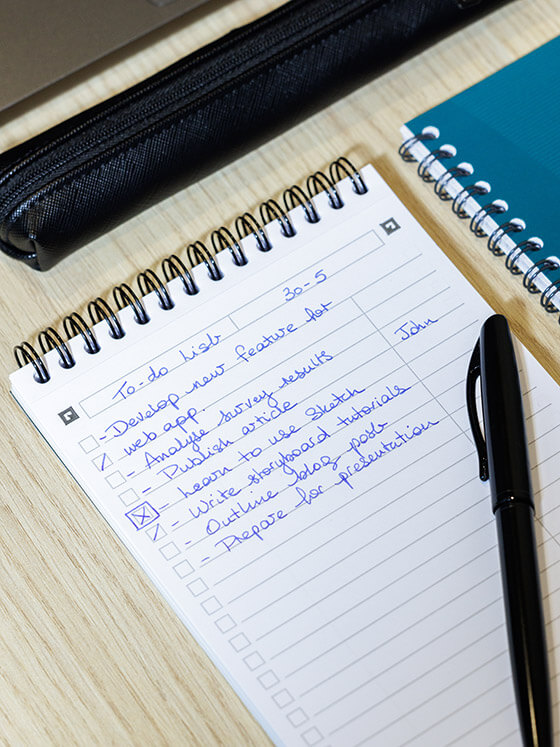 To-do list 30-5
- Develop new feature for
web app.
- Analyse survey results John
- Publish article
- Learn to use Sketch
- Write storyboard tutorials
- Outline blog post
- Prepare for presentation